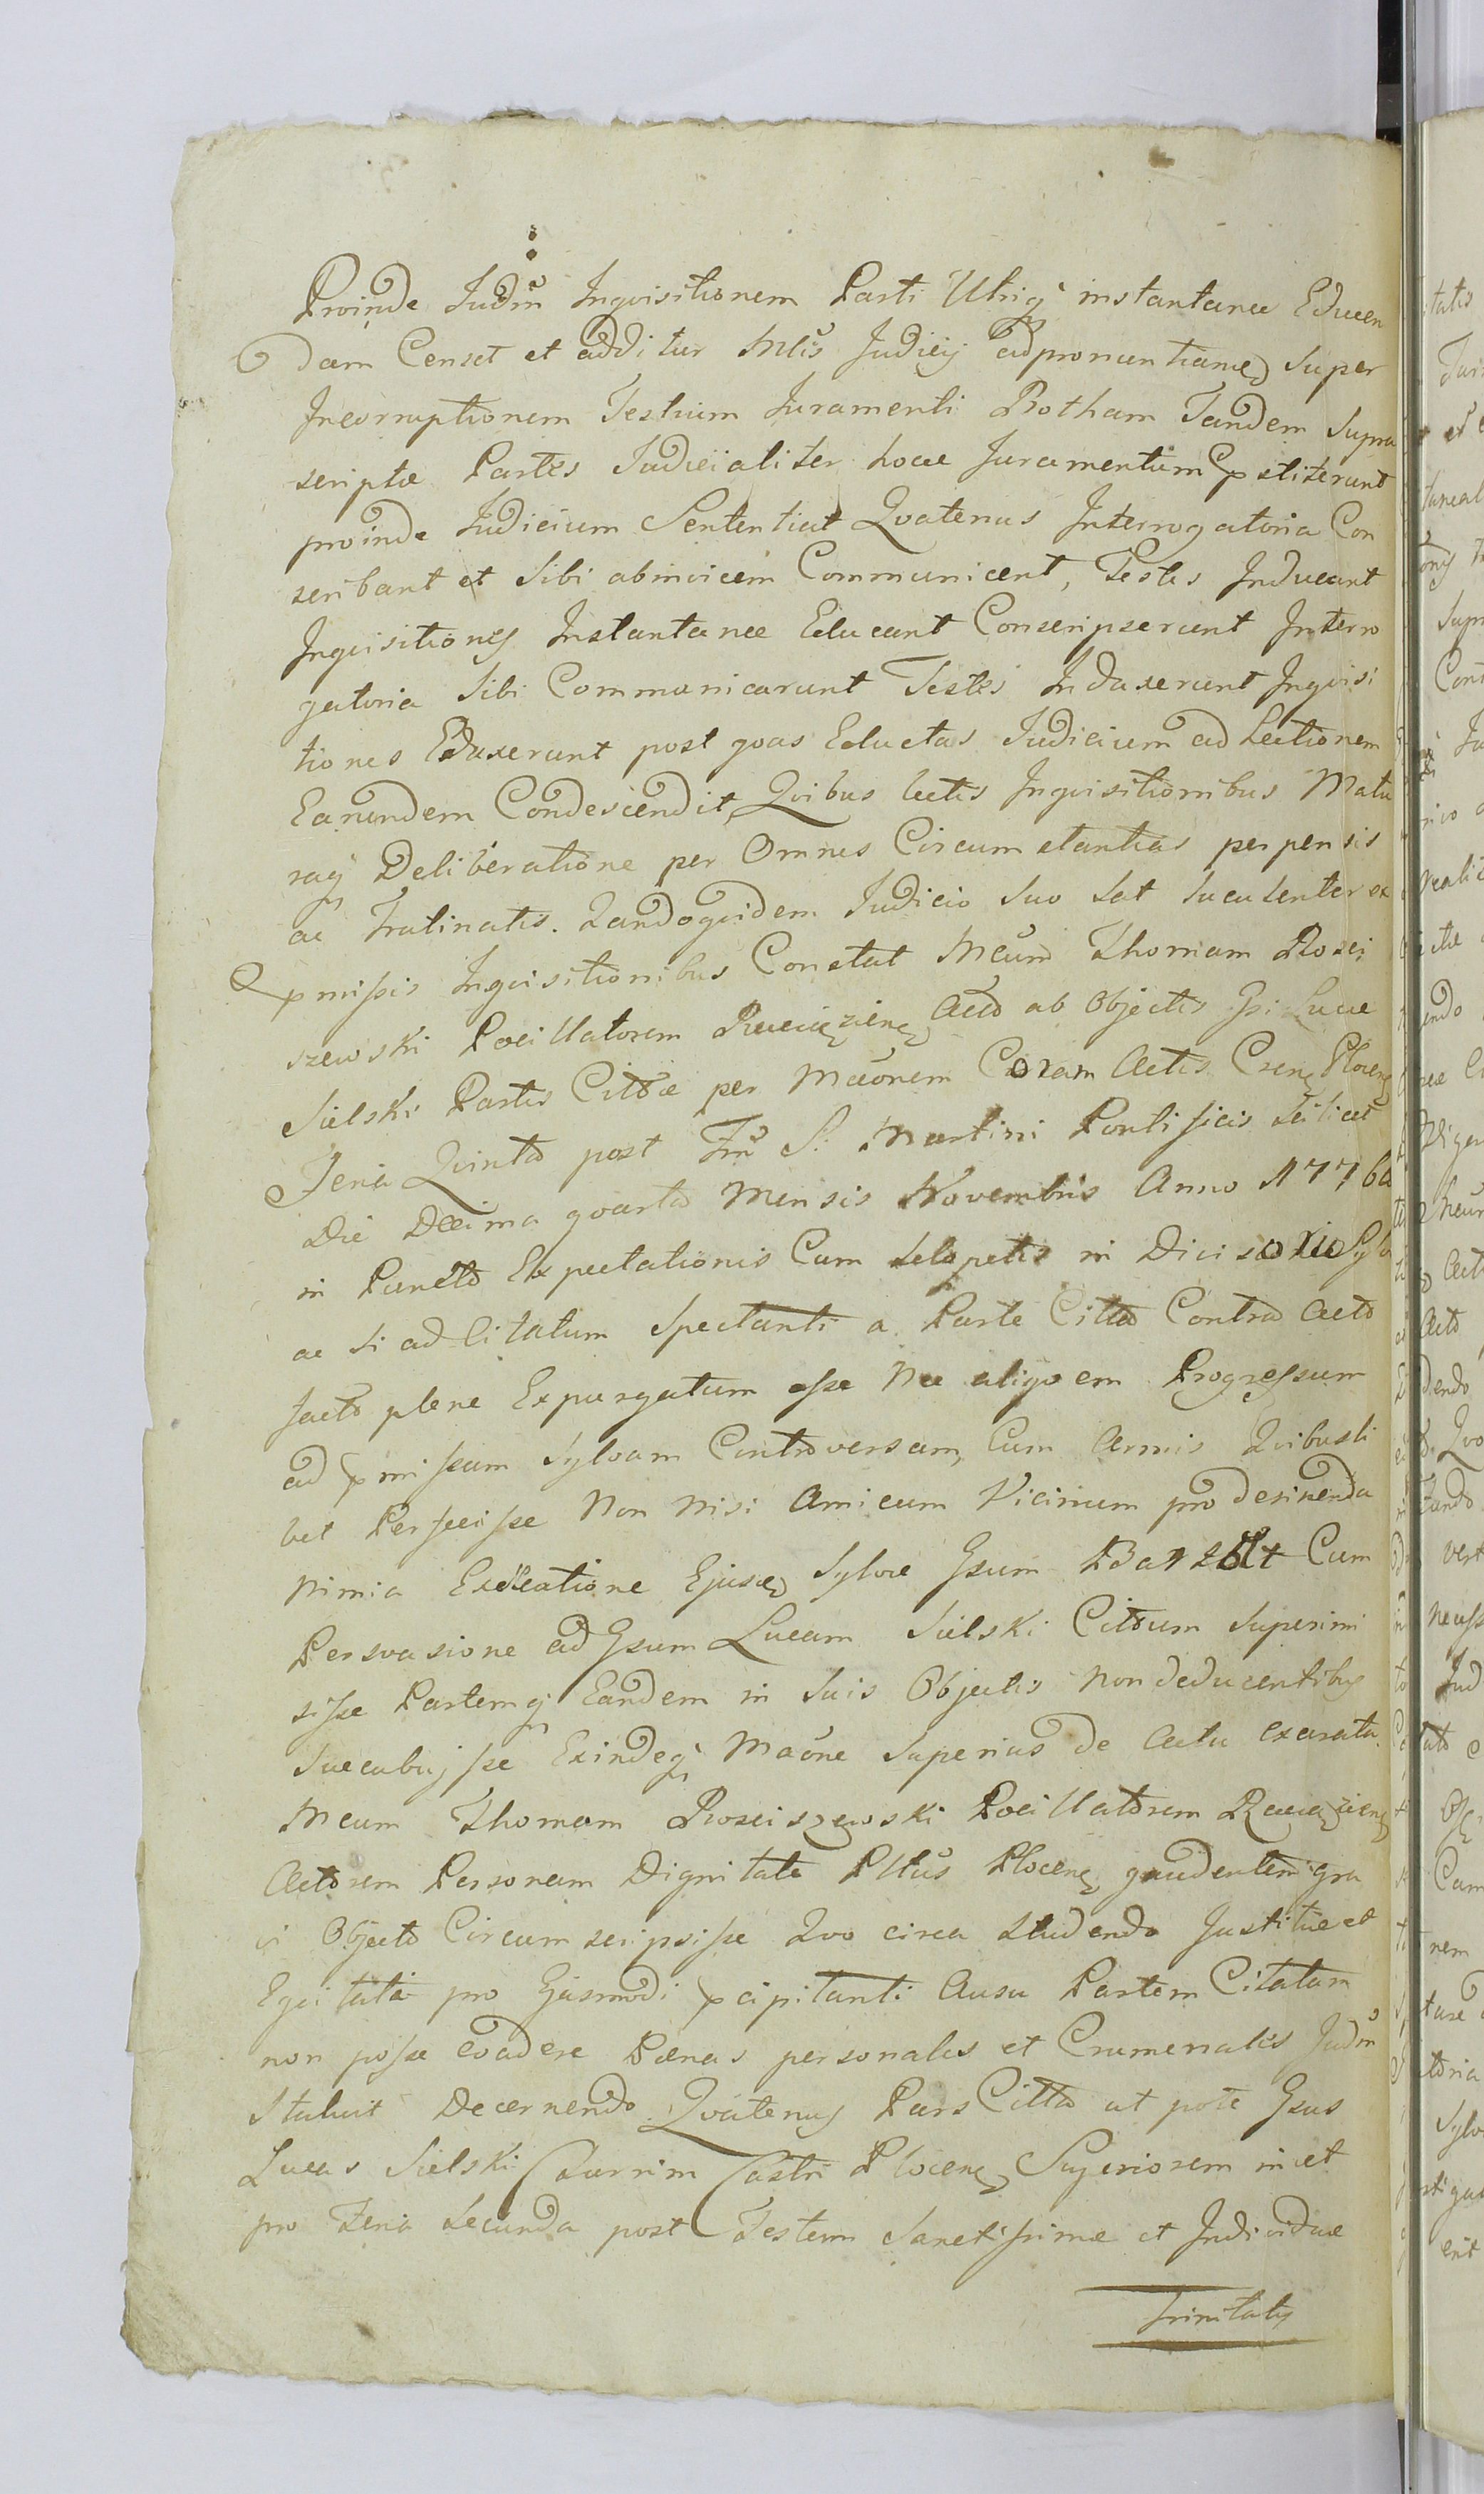 Proinde Judm̃ Inqvisitionem Parti Utriq̃ instantanee Educen
dam Censet et additur Mlis Judicij ad pronuntiand super
Incorruptionem Testium Juramenti Rotham Tandem Supra
scriptæ Partes Judicialiter hocce Juramentum pstiterunt
proinde Judicium Sententiat Qvatenus Interrogatoria Con
scribant et Sibi abinvicem Communicent, Testes Inducant
Inqvisitiones Instantanee Educant Conscripserunt Interro
gatoria Sibi Communicarunt Testes Induxerunt Inqvisi
tiones Eduxerunt post qvas Eductas Judicium ad Lectionem
Earundem Condescendit, Qvibus lectis Inqvisitionibus Matu
raq̃ Deliberatione per Omnes Circumstantias perpensis
ac Trutinatis. Qandoqvidem Judicio Suo Sat luculenter ex
pmissis Inqvisitionibus Constat Mcum Thomam Rosci
szewski Pocillatorem Raciązien Acto ab Objectis Gsi Lucæ
Sielski Partis Cittæ per Mãonem Coram Actis Cren Plocen
Feria Qvinta post Fm̃ S. Martini Pontificis Scilicet
Die Decima qvarta Mensis Novembris Anno 1776to
in Puncto Expectationis Cum Sclopetis in Divisorio
ac Si ad Citatum Spectanti a Parte Citta Contra Acto
facto plene Expurgatum esse Nec aliqvem Progressum
ad pmissam Sylvam Controversam, Cum Armis Qvibusli
bet Perfecisse Non nisi Amicum Vicinum pro desinenda
nimia Ejusd Sylvæ Gsum Cum
Persvasione ad Gsum Lucam Sielski Cittum Superimi
sisse Partemq̃ Eandem in Suis Objectis non deducentibus
Succubuisse Exindeq̃ Mãone Superius de Actu exarata
Mcum Thomam Rosciszewski Pocillatorem Raciązien
Actorem Personam Dignitate Pltus Plocen gaudentem gra
vi Objecto Circumscripsisse Qvo circa Studendo Justitiæ et
Eqvitati pro Ejusmodi pcipitanti Ausu Partem Citatam
non posse evadere Pænas personales et Crumenales Judm̃
Statuit Decernendo Qvatenus Pars Citta ut pote Gsus
Lucas Sielski Turrim Castri Plocen Superiorem in et
pro Feria Secunda post Festum Sanctissimæ et Individuæ
Trinitatis